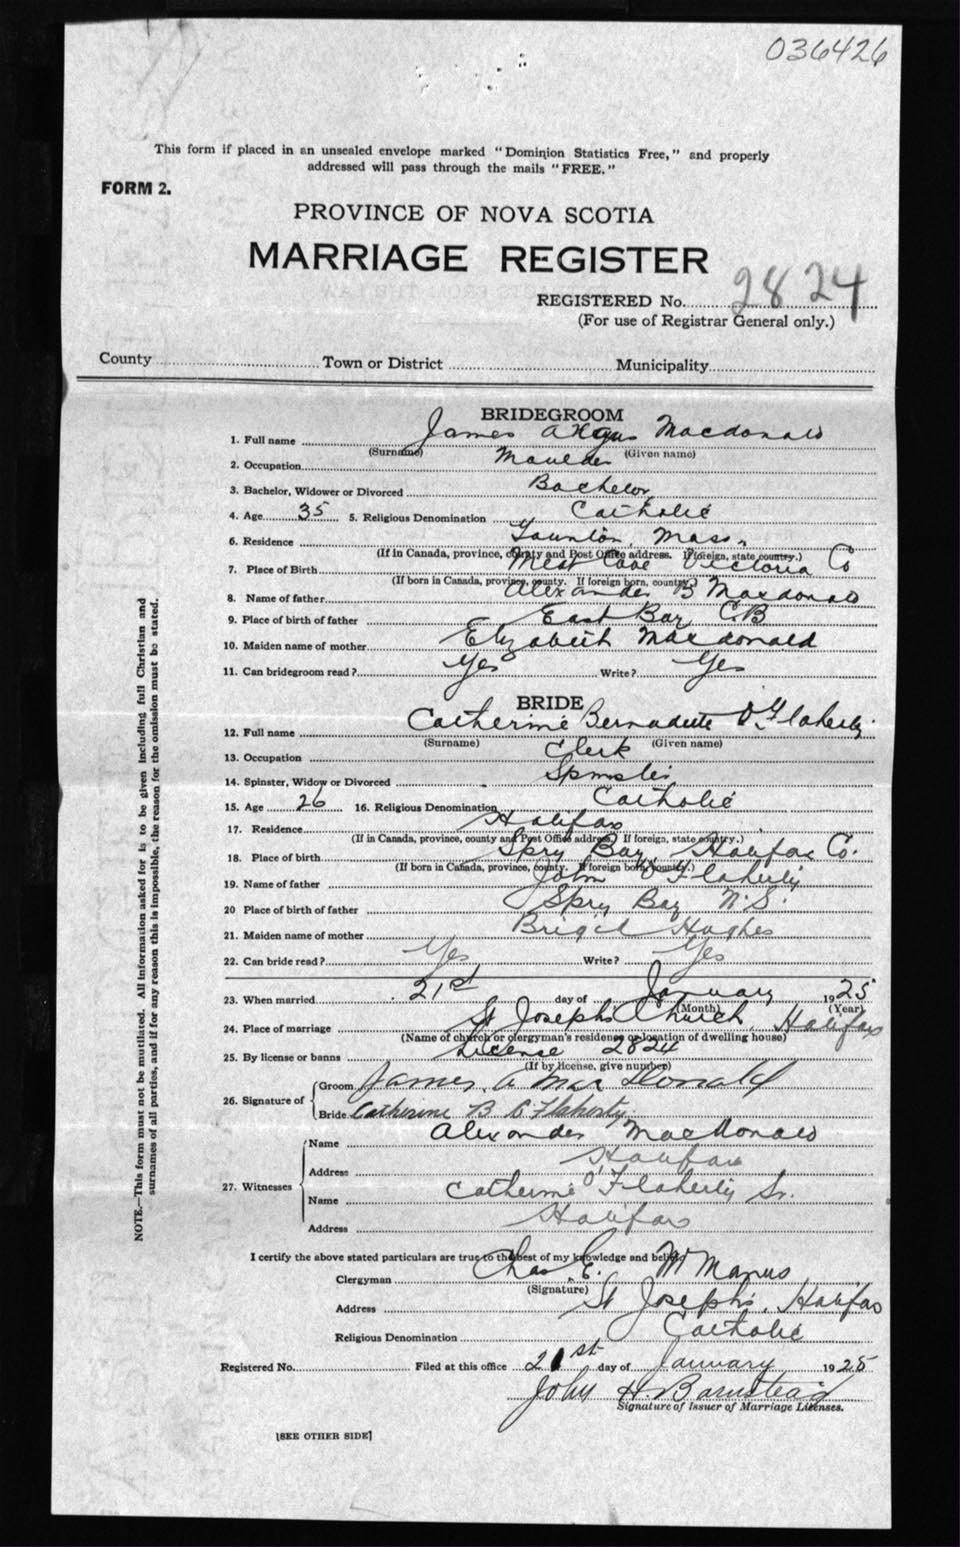 036426
This form if placed in an unsealed envelope marked "Dominion Statistics Free," and properly
addressed will pass through the mails "FREE."
FORM 2.
PROVINCE OF NOVA SCOTIA
MARRIAGE REGISTER
REGISTERED No. 2824
(For use of Registrar General only.)
County Town or District Municipality
BRIDEGROOM
1. Full name James Angus Macdonald
(Surname) (Given name)
2. Occupation Moulder
3. Bachelor, Widower or Divorced Bachelor
4. Age 35 5. Religious Denomination Catholic
6. Residence Taunton, Mass.
(If in Canada, province, county and Post Office address. If foreign, state country.)
7. Place of Birth Meat Cove Victoria Co
(If born in Canada, province, county. If foreign born, country.)
8. Name of father Alexander B Macdonald
9. Place of birth of father East Bay C.B
10. Maiden name of mother Elizabeth Macdonald
11. Can bridegroom read? Yes Write? Yes
BRIDE
12. Full name Catherine Bernadette O'Flaherty
(Surname) (Given name)
13. Occupation Clerk
14. Spinster, Widow or Divorced Spinster
15. Age 26 16. Religious Denomination Catholic
17. Residence Halifax
(If in Canada, province, county and Post Office address. If foreign, state country.)
18. Place of birth Spry Bay Halifax Co.
(If born in Canada, province, county. If foreign born, country.)
19. Name of father John O'Flaherty
20 Place of birth of father Spry Bay N.S.
21. Maiden name of mother Brigid Hughes
22. Can bride read? Yes Write? Yes
23. When married 21st day of January 1925
(Month) (Year)
24. Place of marriage St Josephs Church, Halifax
(Name of church or clergyman's residence or location of dwelling house)
25. By license or banns License 2824
(If by license, give number)
26. Signature of Groom James. A MacDonald
Bride Catherine B O'Flaherty
27. Witnesses Name Alexander MacDonald
Address Halifax
Name Catherine O'Flaherty Sr.
Address Halifax
I certify the above stated particulars are true to the best of my knowledge and belief.
Clergyman Chas E. McManus
(Signature)
Address St Joseph's, Halifax
Religious Denomination Catholic
Registered No. Filed at this office 21st day of January 1925
John H. Barnstead
Signature of Issuer of Marriage Licenses.
[SEE OTHER SIDE]
NOTE.—This form must not be mutilated. All information asked for is to be given including full Christian and
surnames of all parties, and if for any reason this is impossible, the reason for the omission must be stated.